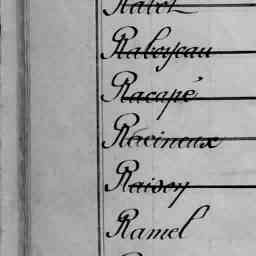 Rabot
Raboyeau
Racapé
Racineux
Raison
Ramel